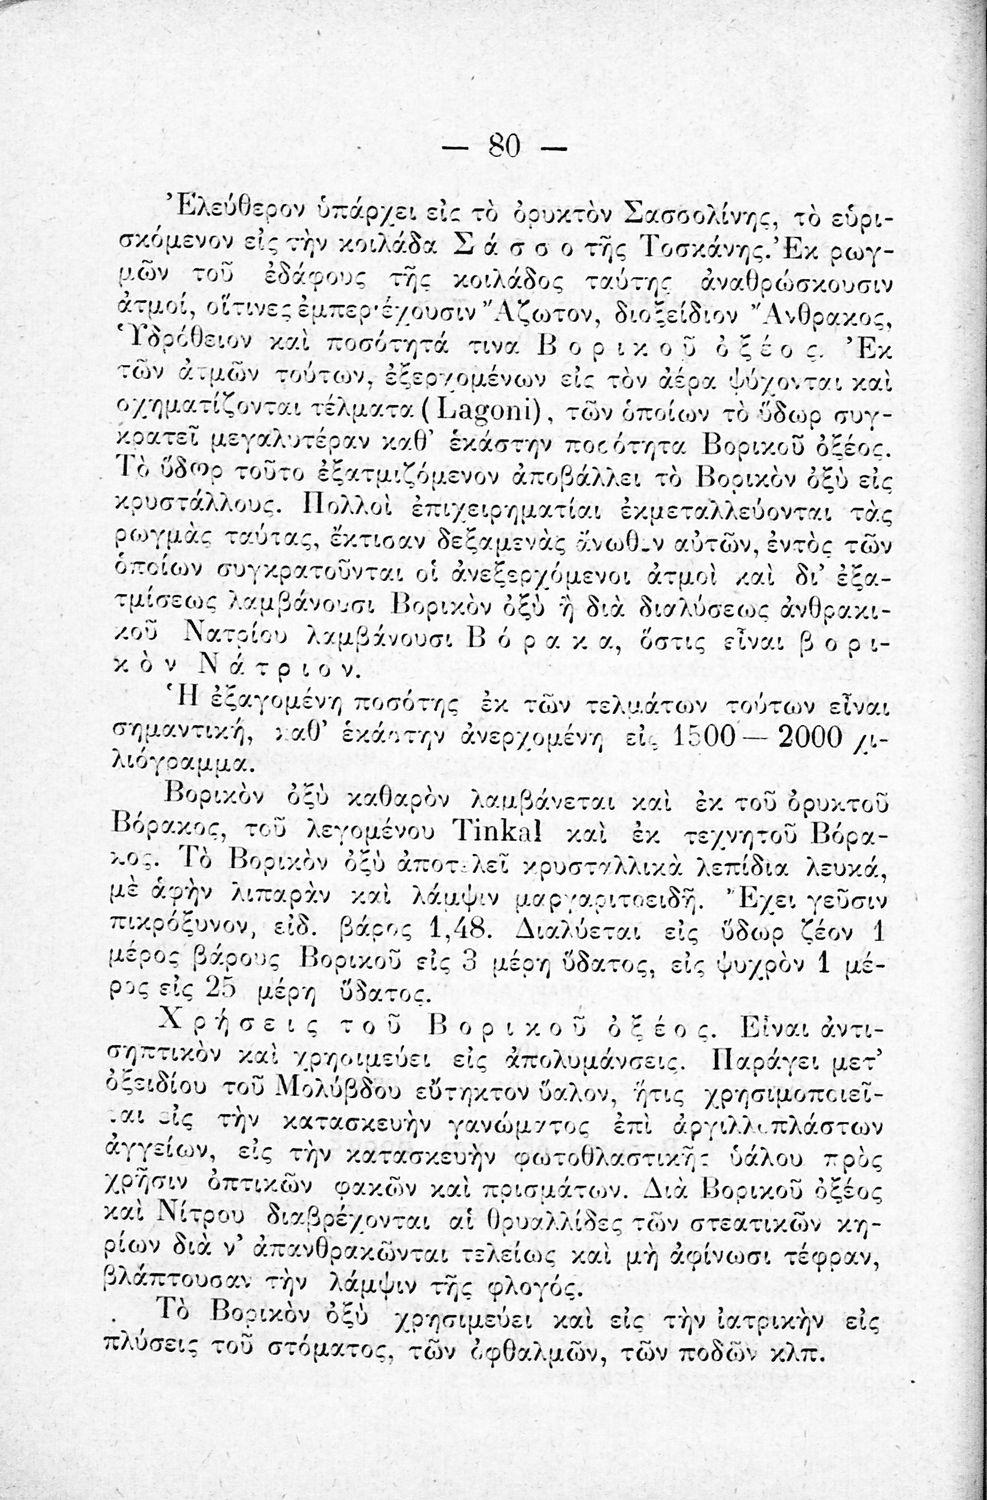 — 80 —
Ἐλεύθερον ὑπάρχει εἰς τὸ ὀρυκτὸν Σασσολίνης, τὸ εὑρι-
σκόμενον εἰς τὴν κοιλάδα Σ ά σ σ ο τῆς Τοσκάνης. Ἐκ ρωγ-
μῶν τοῦ ἐδάφους τῆς κοιλάδος ταύτης ἀναθρώσκουσιν
ἀτμοί, οἵτινες ἐμπεριέχουσιν Ἄζωτον, διοξείδιον Ἄνθρακος,
Ὑδρόθειον καὶ ποσότητά τινα Β ο ρ ι κ ο ῦ ὀ ξ έ ο ς. Ἐκ
τῶν ἀτμῶν τούτων, ἐξερχομένων εἰς τὸν ἀέρα ψύχονται καὶ
σχηματίζονται τέλματα (Lagoni), τῶν ὁποίων τὸ ὕδωρ συγ-
κρατεῖ μεγαλυτέραν καθ' ἑκάστην ποσότητα Βορικοῦ ὀξέος.
Τὸ ὕδωρ τοῦτο ἐξατμιζόμενον ἀποβάλλει τὸ Βορικὸν ὀξὺ εἰς
κρυστάλλους. Πολλοὶ ἐπιχειρηματίαι ἐκμεταλλεύονται τὰς
ρωγμὰς ταύτας, ἔκτισαν δεξαμενὰς ἄνωθεν αὐτῶν, ἐντὸς τῶν
ὁποίων συγκρατοῦνται οἱ ἀνεξερχόμενοι ἀτμοὶ καὶ δι' ἐξα-
τμίσεως λαμβάνουσι Βορικὸν ὀξὺ ἢ διὰ διαλύσεως ἀνθρακι-
κοῦ Νατρίου λαμβάνουσι Β ό ρ α κ α, ὅστις εἶναι β ο ρ ι-
κ ὸ ν Ν ά τ ρ ι ο ν.
Ἡ ἐξαγομένη ποσότης ἐκ τῶν τελμάτων τούτων εἶναι
σημαντική, καθ' ἑκάστην ἀνερχομένη εἰς 1500 — 2000 χι-
λιόγραμμα.
Βορικὸν ὀξὺ καθαρὸν λαμβάνεται καὶ ἐκ τοῦ ὀρυκτοῦ
Βόρακος, τοῦ λεγομένου Tinkal καὶ ἐκ τεχνητοῦ Βόρα-
κος. Τὸ Βορικὸν ὀξὺ ἀποτελεῖ κρυσταλλικὰ λεπίδια λευκά,
μὲ ἁφὴν λιπαρὰν καὶ λάμψιν μαργαριτοειδῆ. Ἔχει γεῦσιν
πικρόξυνον, εἰδ. βάρος 1,48. Διαλύεται εἰς ὕδωρ ζέον 1
μέρος βάρους Βορικοῦ εἰς 3 μέρη ὕδατος, εἰς ψυχρὸν 1 μέ-
ρος εἰς 25 μέρη ὕδατος.
Χ ρ ή σ ε ι ς τ ο ῦ Β ο ρ ι κ ο ῦ ὀ ξ έ ο ς. Εἶναι ἀντι-
σηπτικὸν καὶ χρησιμεύει εἰς ἀπολυμάνσεις. Παράγει μετ'
ὀξειδίου τοῦ Μολύβδου εὔτηκτον ὕαλον, ἥτις χρησιμοποιεῖ-
ται εἰς τὴν κατασκευὴν γανώματος ἐπὶ ἀργιλλοπλάστων
ἀγγείων, εἰς τὴν κατασκευὴν φωτοθλαστικῆς ὑάλου πρὸς
χρῆσιν ὀπτικῶν φακῶν καὶ πρισμάτων. Διὰ Βορικοῦ ὀξέος
καὶ Νίτρου διαβρέχονται αἱ θρυαλλίδες τῶν στεατικῶν κη-
ρίων διὰ ν' ἀπανθρακῶνται τελείως καὶ μὴ ἀφίνωσι τέφραν,
βλάπτουσαν τὴν λάμψιν τῆς φλογός.
Τὸ Βορικὸν ὀξὺ χρησιμεύει καὶ εἰς τὴν ἰατρικὴν εἰς
πλύσεις τοῦ στόματος, τῶν ὀφθαλμῶν, τῶν ποδῶν κλπ.